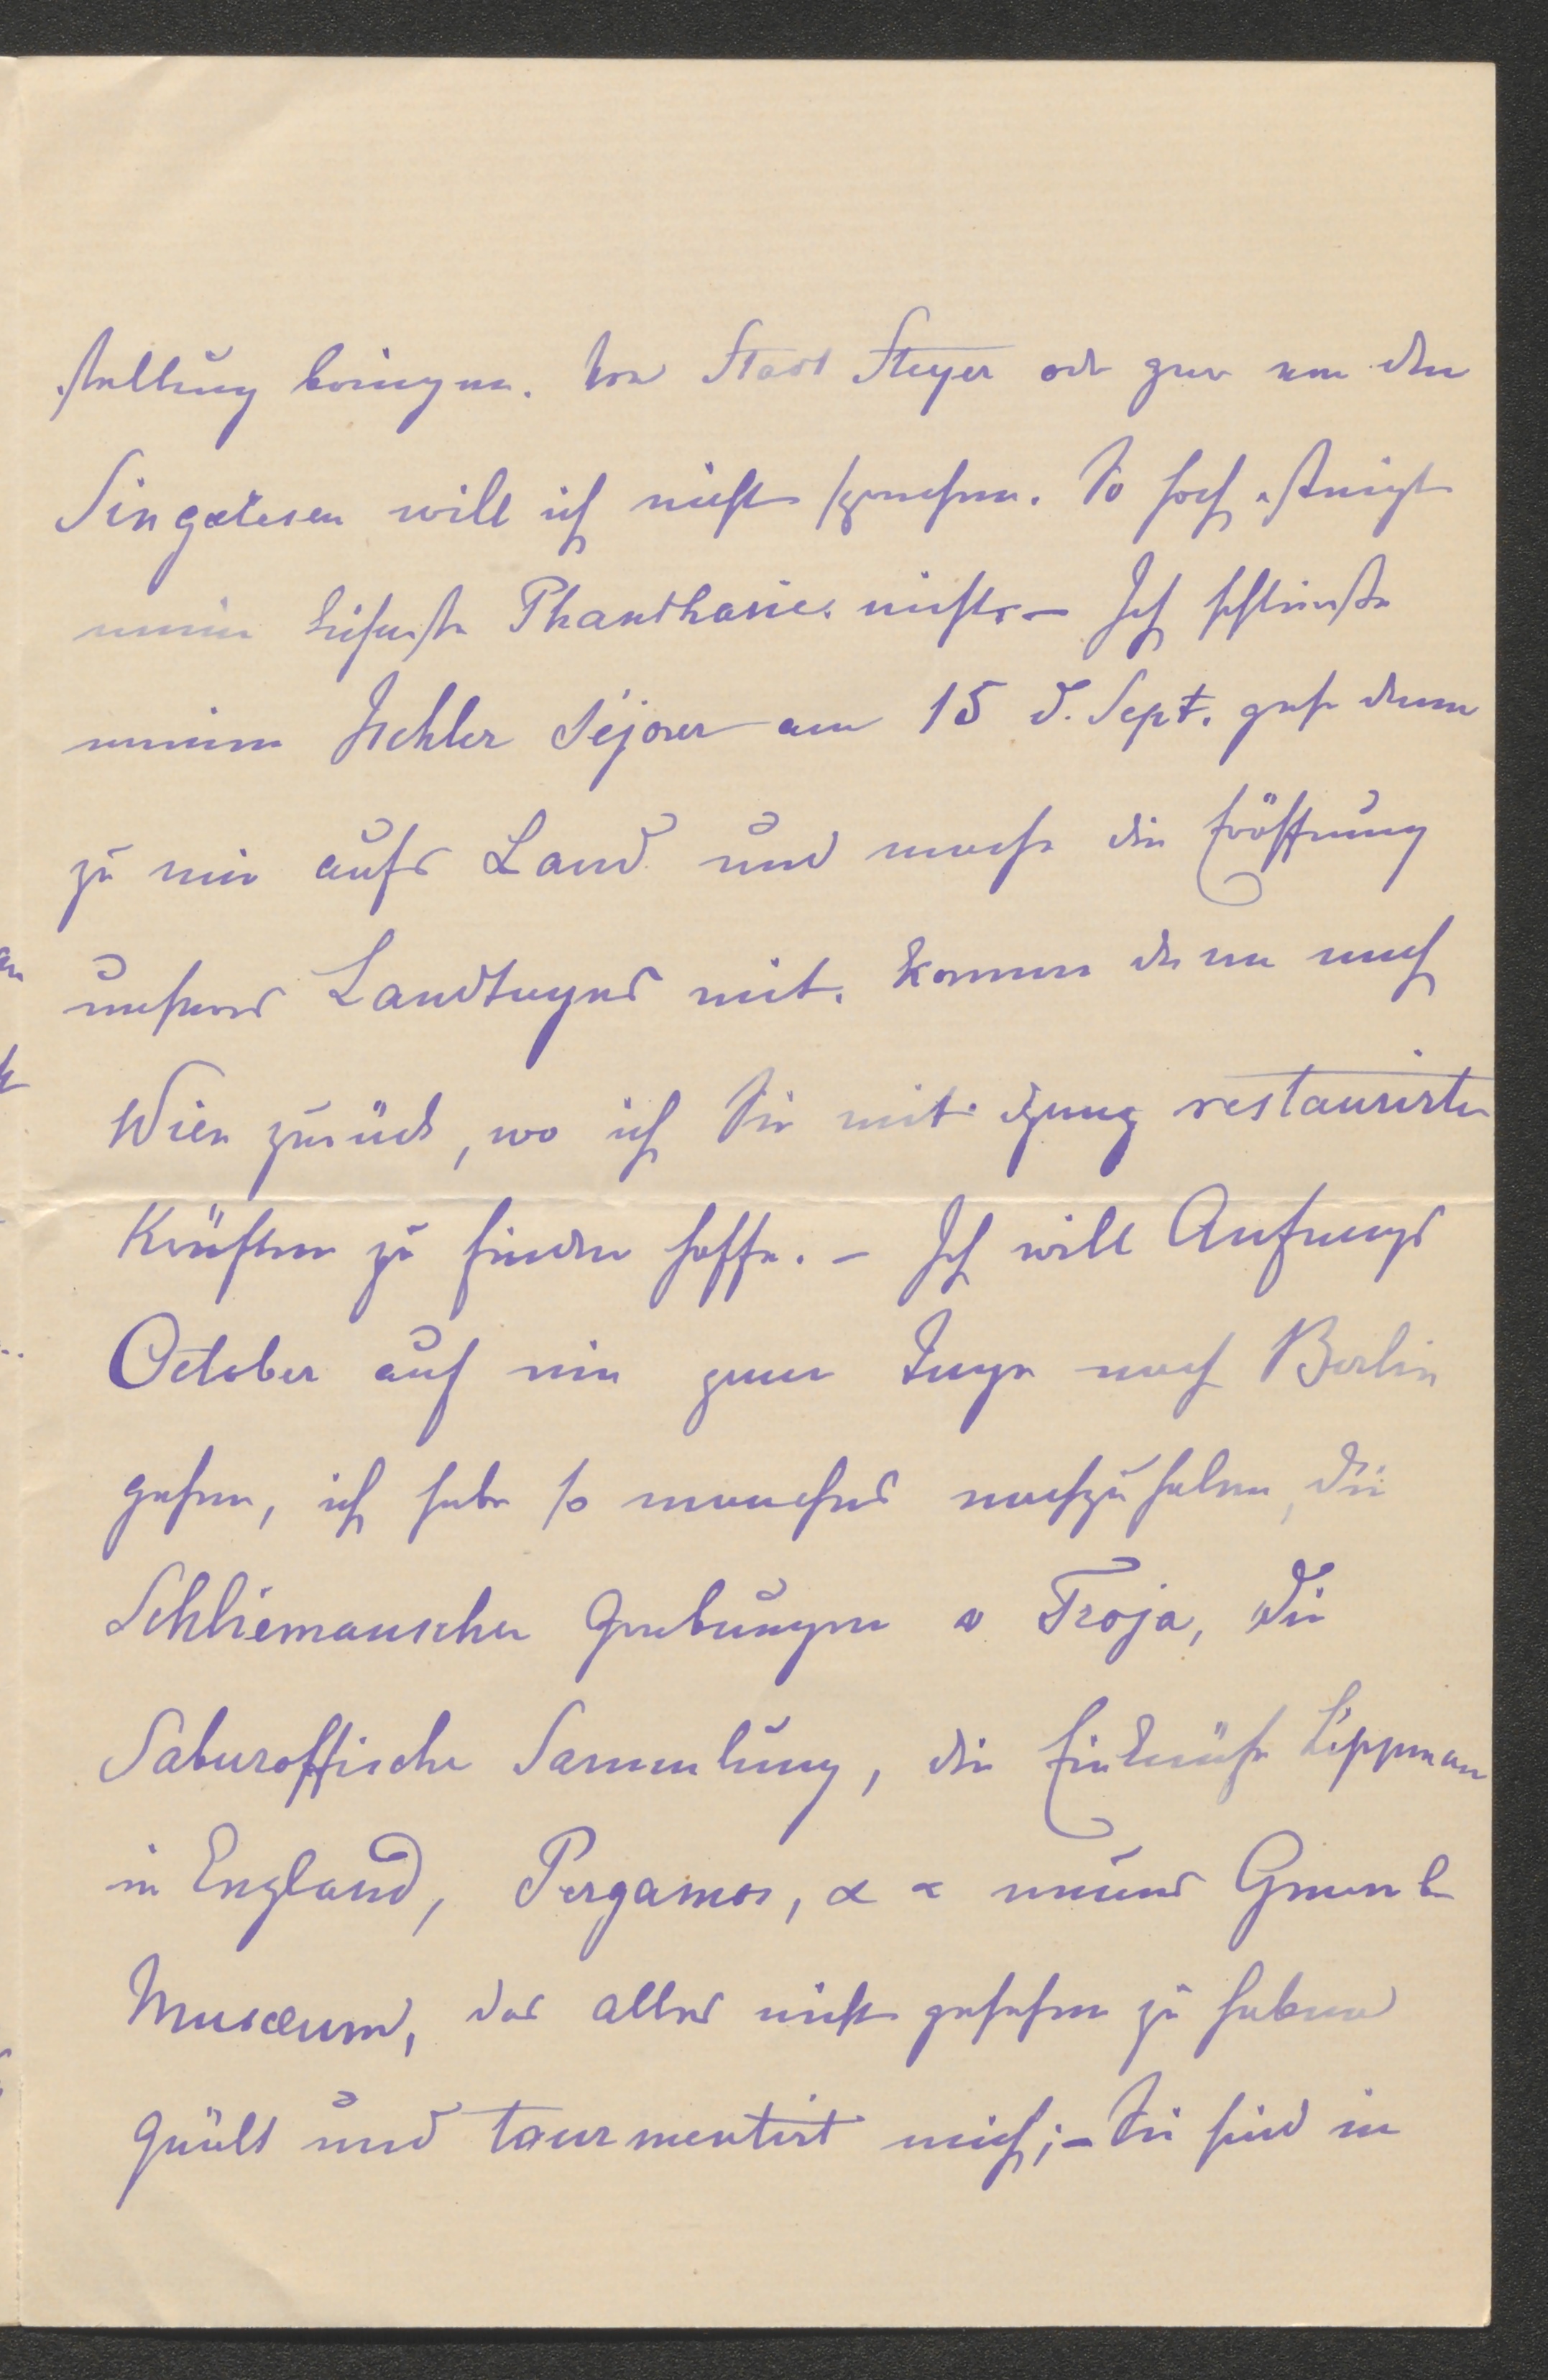 stellung bringen. Von Stadt Steyer od gar von den
Singalesen will ich nicht sprechen. So hoch steigt
meine kühnste Phanthasie nicht. – Ich schließe
meinen Ischler Séjour am 15 d. Sept. gehe dann
zu mir aufs Land und mache die Eröffnung
unseres Landtages mit. Komme dann nach
Wien zurück, wo ich Sie mit ganz restaurirten
Kräften zu finden hoffe. – Ich will Anfangs
October auf ein paar Tage nach Berlin
gehen, ich habe so manches nachzuholen, die
Schliemanschen Grabungen v Troja, die
Saburoffische Sammlung, die Einkäufe Lippman
in England, Pergamos, neues Gewerbe
Museum, das alles nicht gesehen zu haben
quält und tourmentirt mich; – Sie sind in